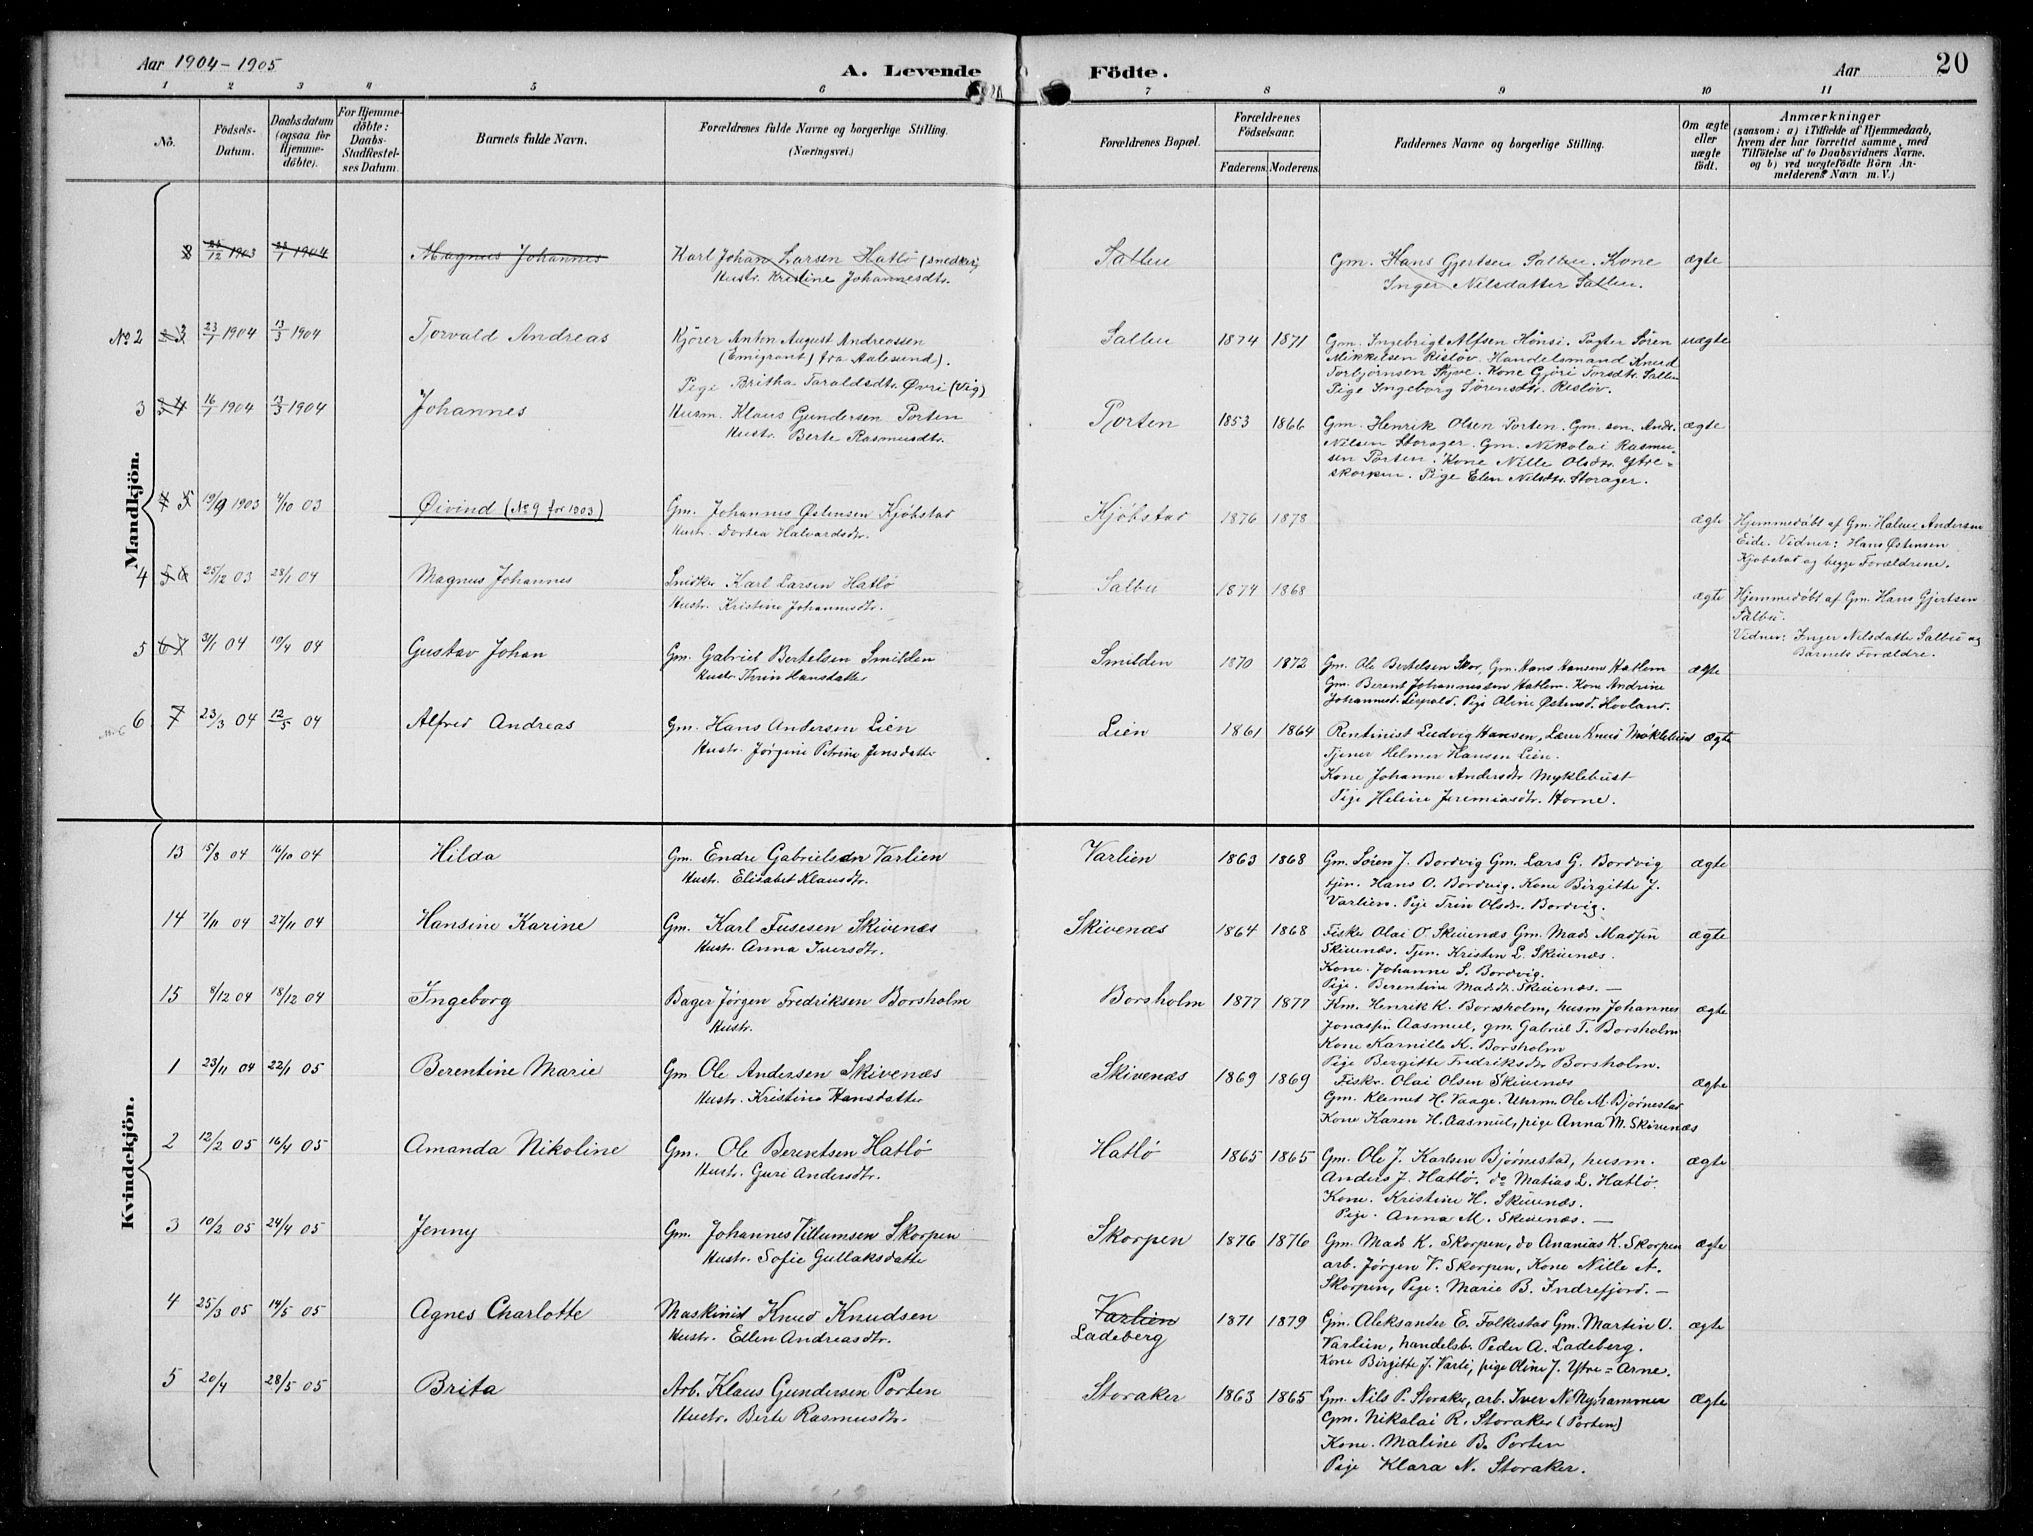 Aar 1904-1905
A. Levende Födte.
Aar
20
1 2 3 4 5 6 7 8 9 10 11
No.
Födsels-Datum.
Daabsdatum (ogsaa for Hjemmedöbte).
For Hjemmedöbte: Daabs-Stadfæstelses Datum.
Barnets fulde Navn.
Forældrenes fulde Navne og borgerlige Stilling. (Næringsvei.)
Forældrenes Bopæl.
Forældrenes Födselsaar.
Faderens. Moderens.
Faddernes Navne og borgerlige Stilling.
Om ægte eller uægte födt.
Anmærkninger
(saasom: a) i Tilfælde af Hjemmedaab, hvem der har forrettet samme, med Tilföielse af to Daabsvidners Navne. og b) ved uægtefödte Börn Anmelderens Navn m. V.)
Mandkjön.
1903 1904 Magnus Johannes
Karl Johan Larsen Hatlö (Snedker)
Hustr. Kristine Johannesdtr.
Salbu
Gm. Hans Gjertsen Salbu. Kone
Inger Nilsdatter Salbu.
ægte
No 2 3 23/1 1904 13/3 1904 Torvald Andreas
Kjörer Anton August Andreassen
(Emigrant) fra Aalesund).
Pige Britha Taraldsdtr. Øvri (Vig)
Salbu 1874 1871
Gm. Ingebrigt Alfsen Hönsi. Pagter Sören
Mikkelsen Risløv. Handelsmand Knud
Torbjörnsen Skjve. Kone Gjöri Torsdtr. Salbu
Pige Ingeborg Sörensdtr. Risløv.
uægte
3 4 16/1 1904 13/3 1904 Johannes
Husm. Klaus Gundersen Porten
Hustr. Berte Rasmusdtr.
Porten 1853 1866
Gm. Henrik Olsen Porten. Gm. søn. Ands.
Nilsen Storager. Gm. Nikolai Rasmu-
sen Porten. Kone Nille Olsdtr. Ytre=
skorpen. Pige Elen Nilsdtr. Storager.
ægte
4 5 19/9 1903 4/10 03 Øivind (No 9 for 1903)
Gm. Johannes Østensen Kjöbstad
Hustr. Dortea Halvardsdtr.
Kjöbstad 1876 1878
ægte
Hjemmedøbt af Gm. Halvor Andersen
Eide. Vidner: Hans Østensen
Kjobstad og begge Forældrene.
4 5 6 25/12 03 28/1 04 Magnus Johannes
Snidker Karl Larsen Hatlö
Hustr. Kristine Johannesdtr.
Salbu 1874 1868
ægte
Hjemmedøbt af Gm. Hans Gjertsen
Salbu.
Vidner: Inger Nilsdatter Salbu og
Barnets Forældre.
5 6 7 31/1 04 10/4 04 Gustav Johan
Gm. Gabriel Bertelsen Smilden
Hustr. Thrin Hansdatter
Smilden 1870 1872
Gm. Ole Bertelsen Skor, Gm. Hans Hansen Hatlem
Gm. Berent Johannessen Hatlem. Kone Andrine
Johannesd. Leepold. Pige Oline Østensd. Hovland.
ægte
6 7 23/3 04 12/5 04 Alfred Andreas
Gm. Hans Andersen Lien
Hustr. Jørgine Petrine Jensdatter
Lien 1861 1864
Rentinist Ludvig Hansen, Lærer Knud Møklebust
Tjener Helmer Hansen Lien.
Kone Johanne Andersdtr Myklebust
Pige Heline Jeremiasdtr. Horne.
ægte
Kvindekjön.
13 15/8 04 16/10 04 Hilda
Gm. Endre Gabrielsen Varlien
Hustr. Elisabet Klausdtr.
Varlien 1863 1868
Gm. Sören J. Bordvig Gm. Lars G. Bordvig
tjen. Hans O. Bordvig. Kone Birgitte J.
Varlien. Pige Trin Olsdr. Bordvig.
ægte
14 7/11 04 27/11 04 Hansine Karine
Gm. Karl Fusesen Skivenæs
Hustr. Anna Iversdtr.
Skivenæs 1864 1868
Fisker Olai O. Skivenæs Gm. Mads Madsen
Skivenæs. Tjen. Kristen L. Skivenæs.
Kone. Johanne S. Bordvig.
Pige. Berentine Madsdr. Skivenæs. —
ægte
15 8/12 04 18/12 04 Ingeborg
Bager Jörgen Fredriksen Borsholm
Hustr.
Borsholm 1877 1877
Km. Henrik K. Borsholm, husm Johannes
Jonassen Aasmul, gm. Gabriel T. Borsholm
Kone Karnille K. Borsholm
Pige Bergitte Fredriksdr Borsholm.
ægte
1 23/11 04 22/1 05 Berentine Marie
Gm. Ole Andersen Skivenæs
Hustr. Kristine Hansdatter
Skivenæs 1869 1869
Fisker. Olai Olsen Skivenæs
Gm. Klemet H. Vaage. Uhrm Ole M. Bjørnestad
Kone Karen H. Aasmul, pige Anna M. Skivenæs
ægte
2 12/2 05 16/4 05 Amanda Nikoline
Gm. Ole Berentsen Hatlö
Hustr. Guri Andersdtr.
Hatlö 1865 1865
Gm. Ole J. Karlsen Bjørnestad, husm.
Anders J. Hatlö. do Matias L. Hatlö.
Kone. Kristine H. Skivenæs.
Pige. Anna M. Skivenæs. —
ægte
3 10/2 05 24/4 05 Jenny
Gm. Johannes Villumsen Skorpen
Hustr. Sofie Gullaksdatter
Skorpen 1876 1876
Gm. Mads K. Skorpen, do Ananias K. Skorpen
arb. Jörgen V. Skorpen, Kone Nille A.
Skorpen, Pige: Marie B. Indrefjord. —
ægte
4 25/3 05 14/5 05 Agnes Charlotte
Maskinist Knud Knudsen
Hustr. Ellen Andreasdtr.
Varlien
Ladeberg 1871 1879
Gm. Aleksander E. Folkestad Gm. Martin O.
Varlien, handelsb. Peder A. Ladeberg.
Kone Birgitte J. Varli, pige Oline J. Ytre=Arne.
ægte
5 20/4 28/5 05 Brita
Arb. Klaus Gundersen Porten
Hustr. Berte Rasmusdtr.
Storaker 1863 1865
Gm. Nils P. Storaker, arb. Iver N. Nyhammer
Gm. Nikolai R. Storaker (Porten)
Kone. Maline B. Porten
Pige Klara N. Storaker.
ægte